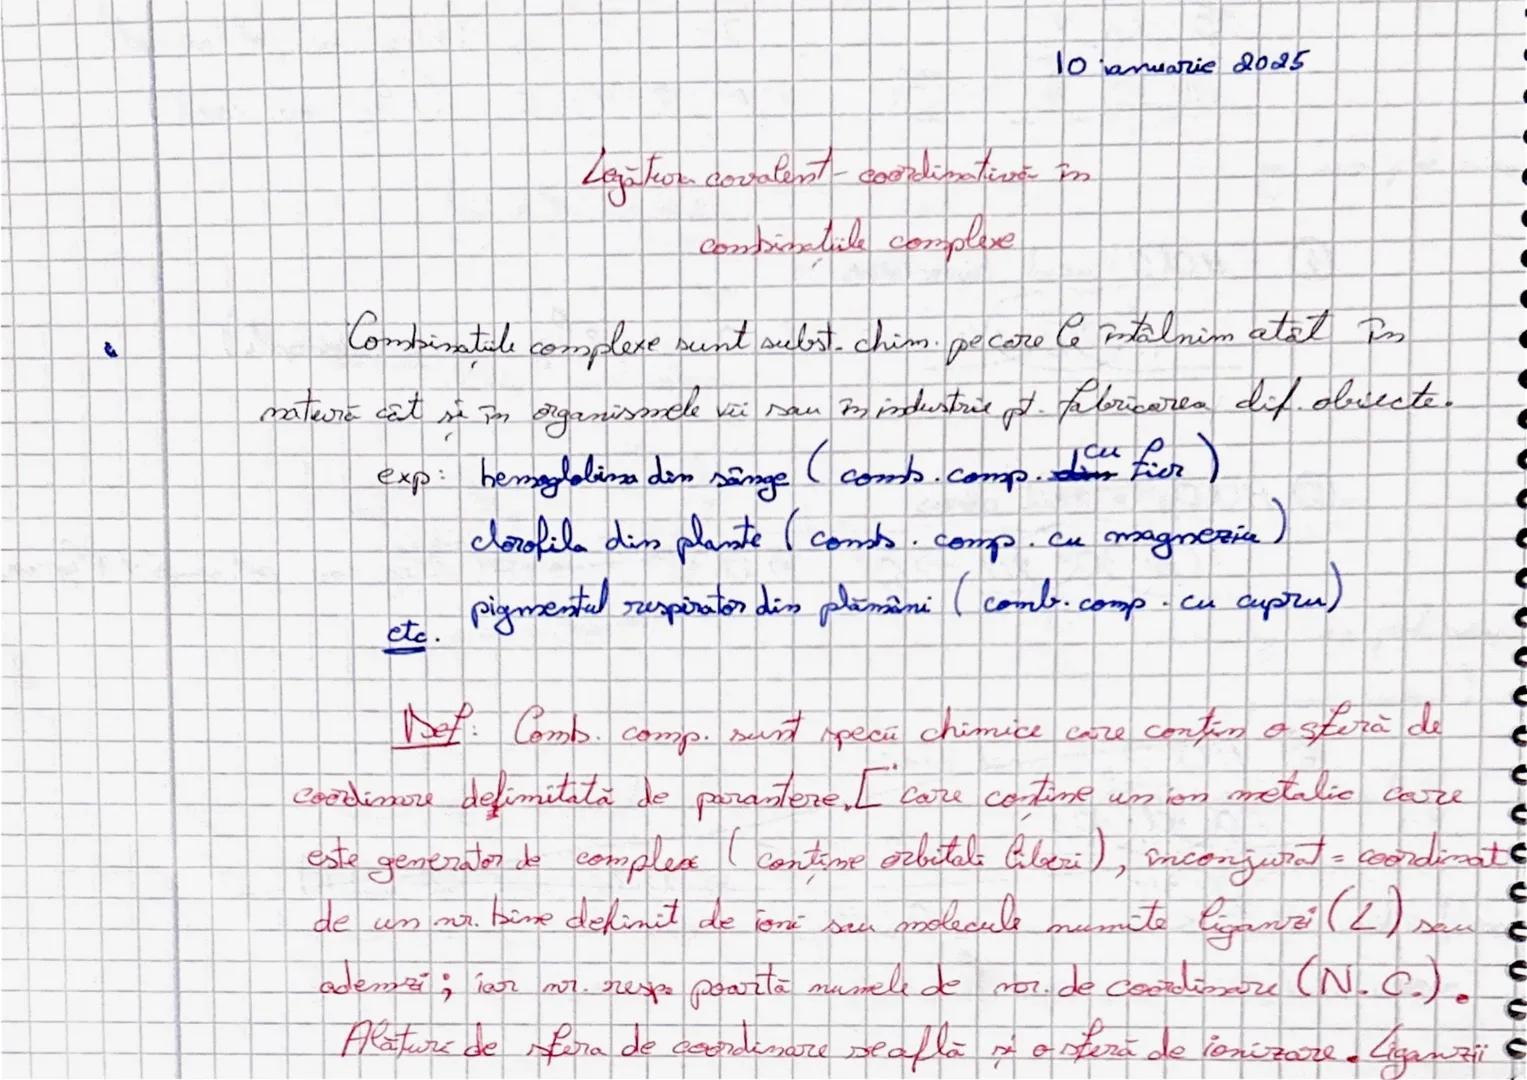 10 ianuarie 2025
Legătura covalent-coordinativă în
combinațiile complexe
Combinațiile complexe sunt subst. chim. pe care le întâlnim atât în
natură cât și în organismele vii sau în industrie pt. fabricarea dif. obiecte.
exp: hemoglobina din sânge (comb. comp. din cu fier)
clorofila din plante (comb. comp. cu magneziu)
pigmentul respirator din plămâni (comb. comp. cu cupru)
etc.
Def: Comb. comp. sunt specii chimice care conțin o sferă de
coordinare definitată de parantere, [ care conține un ion metalic care
este generator de complex (conține orbitali liberi), înconjurat = coordinat
de un nr. bine definit de ioni sau molecule numite liganzi (L) sau
ademzi; iar nr. resp. poartă numele de nr. de coordinare (N.C.).
Alături de sfera de coordinare se află și o sferă de ionizare. Liganzii